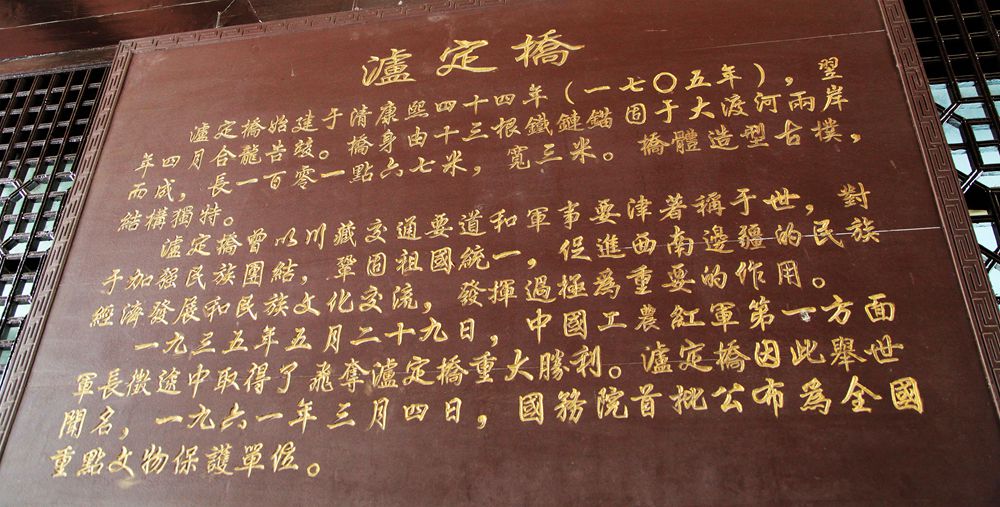 瀘定橋
瀘定橋始建于清康熙四十四年（一七〇五年），翌
年四月合龍告竣。橋身由十三根鐵鏈錨固于大渡河兩岸
而成，長一百零一點六七米，寬三米。橋體造型古樸，
結構獨特。
瀘定橋曾以川藏交通要道和軍事要津著稱于世，對
于加强民族團結，鞏固祖國統一，促進西南邊疆的民族
經濟發展和民族文化交流，發揮過極為重要的作用。
一九三五年五月二十九日，中國工農紅軍第一方面
軍長徵途中取得了飛奪瀘定橋重大勝利。瀘定橋因此舉世
聞名，一九六一年三月四日，國務院首批公布為全國
重點文物保護單位。